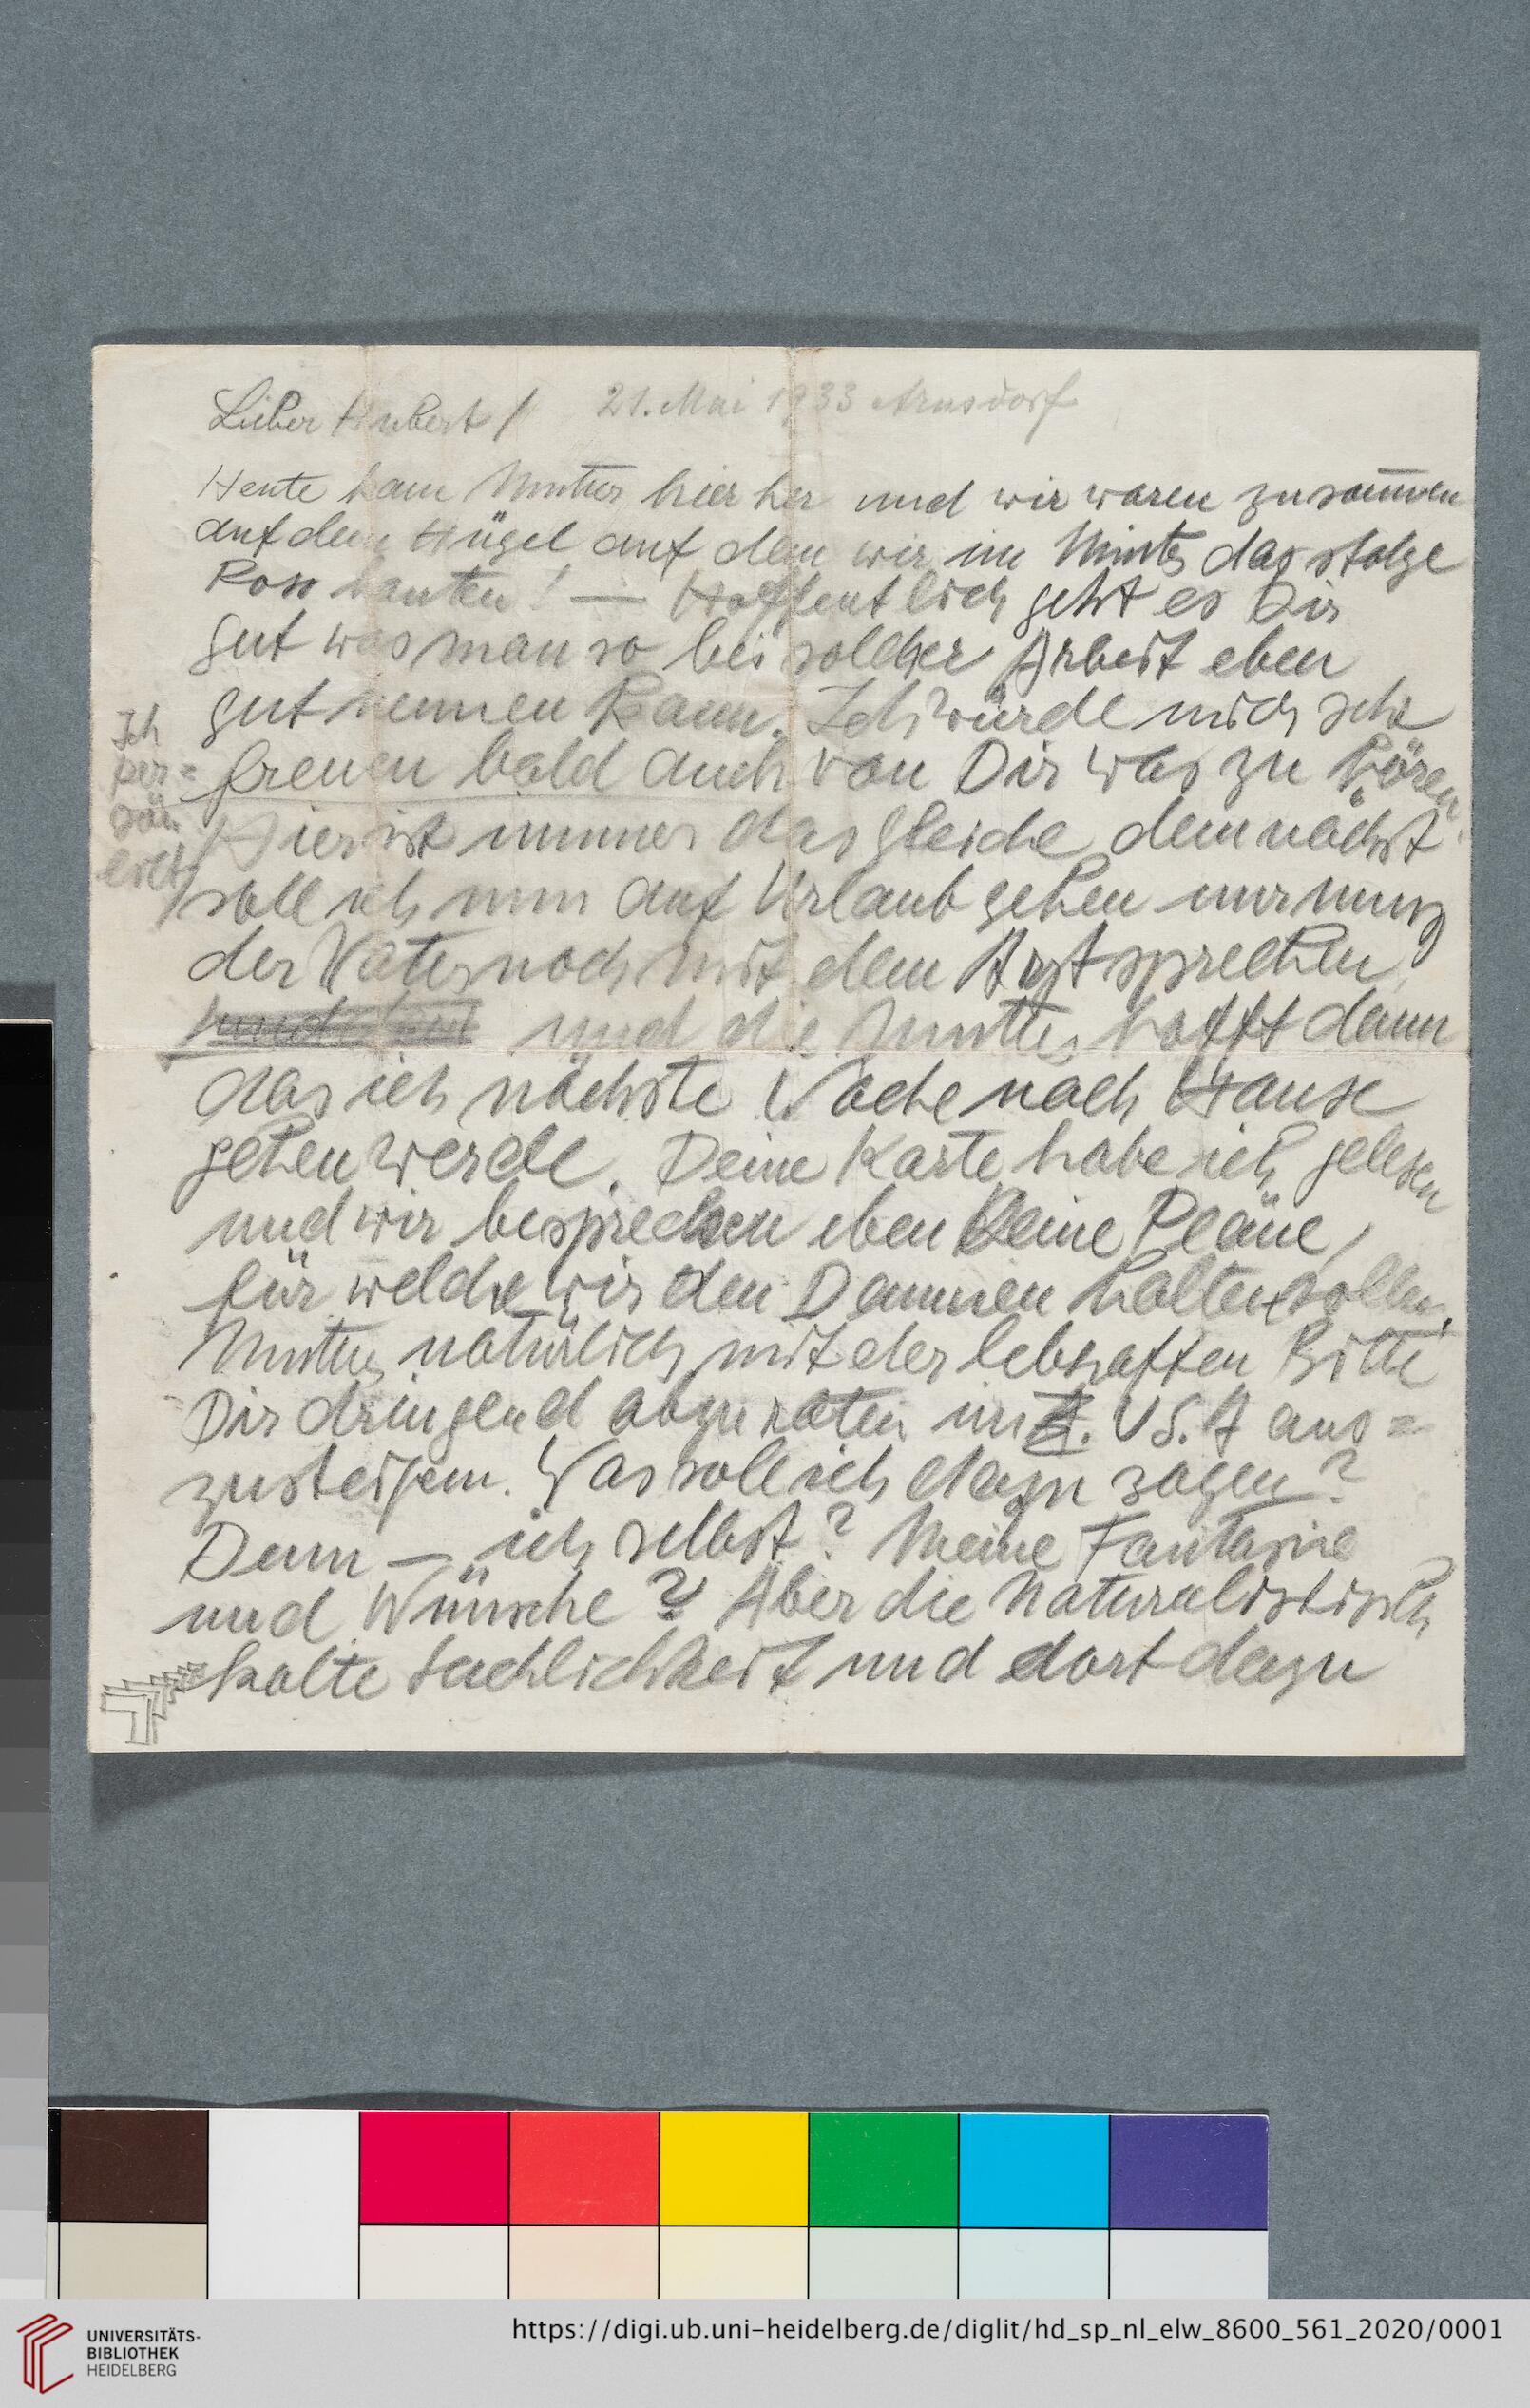 Lieber Hubert! 21. Mai 1933 Arnsdorf
Heute kam Mutter hier her und wir waren zusam̅en
auf dem Hügel auf dem wir im Winter das stolze
Ross bauten! — Hoffentlich geht es Dir
gut was man so bei solcher Arbeit eben
gut nennen kann. Ich würde mich sehr
freuen bald auch von Dir was zu hören.
Hier ist immer das gleiche demnächst
soll ich nun auf Urlaub gehen nur muss
der Vater noch mit dem Arzt sprechen
und die Mutter hofft dann
das ich nächste Woche nach Hause
gehen werde. Deine Karte habe ich gelesen
und wir besprechen eben Deine Pläne,
für welche wir den Daumen halten sollen.
Mutter natürlich mit der lebhaften Bitte
Dir dringend abzuraten in U S. A aus=
zusteigen. Was soll ich dazu sagen?
Denn — ich selbst? Meine Fantasie
und Wünsche? Aber die naturalistisch
kalte Sachlichkeit und dort dazu
Ich
per=
sön
lich
UNIVERSITÄTS-
BIBLIOTHEK
HEIDELBERG
https://digi.ub.uni-heidelberg.de/diglit/hd_sp_nl_elw_8600_561_2020/0001